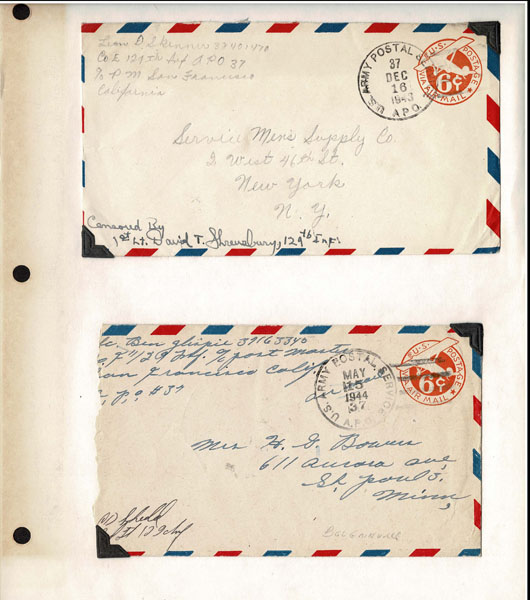 Leon D. Skinner 37401470
Co E 129th Inf APO 37
% P.M. San Francisco
California
U.S. ARMY POSTAL S
37
DEC
16
1943
A.P.O.
U.S. POSTAGE
VIA AIR MAIL
6¢
Service Men's Supply Co.
2 West 46th St.
New York
N. Y.
Censored By
1st Lt. David T. Shrewsbury, 129th Inf.
Ben 39163340
129 Inf. % post
San Francisco Calif
#37
U.S. ARMY POSTAL SERVICE
MAY
15
1944
37
A.P.O.
U.S. POSTAGE
VIA AIR MAIL
6¢
Mrs H. G. Bowers
611 aurora ave,
St. paul 3.
Minn,
129 Inf